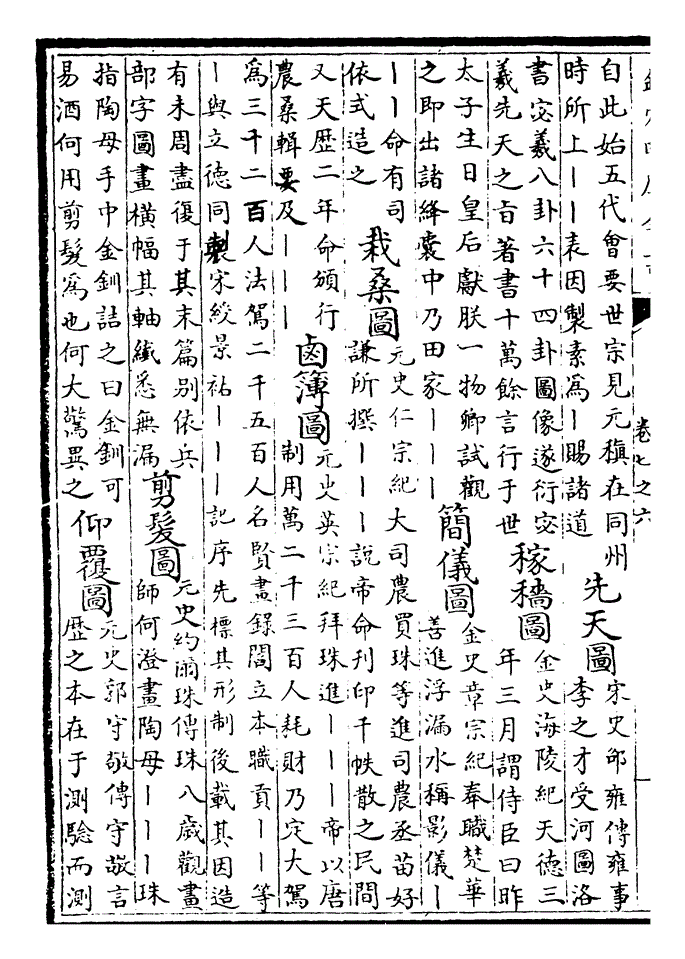 卷七之六
自此始五代會要世宗見元稹在同州
時所上｜｜表因製素為｜賜諸道
先天圖
宋史邵雍傳雍事
李之才受河圖洛
書宓羲八卦六十四卦圖像遂衍宓
羲先天之旨著書十萬餘言行于世
稼穡圖
金史海陵紀天德三
年三月謂侍臣曰昨
太子生日皇后獻朕一物卿試觀
之即出諸絳囊中乃田家｜｜｜
簡儀圖
金史章宗紀奉職楚華
善進浮漏水稱影儀｜
｜｜命有司
依式造之
栽桑圖
元史仁宗紀大司農買珠等進司農丞苗好
謙所撰｜｜｜說帝命刊印千帙散之民間
又天歷二年命頒行
農桑輯要及｜｜｜
鹵簿圖
元史英宗紀拜珠進｜｜｜帝以唐
制用萬二千三百人耗財乃定大駕
為三千二百人法駕二千五百人名賢畫錄閻立本職貢｜｜等
｜與立德同製宋綬景祐｜｜｜記序先標其形制後載其因造
有未周盡復于其末篇別依兵
部字圖畫橫幅其軸纖悉無漏
剪髮圖
元史約爾珠傳珠八歲觀畫
師何澄畫陶母｜｜｜珠
指陶母手中金釧詰之曰金釧可
易酒何用剪髮為也何大驚異之
仰覆圖
元史郭守敬傳守敬言
歷之本在于測驗而測